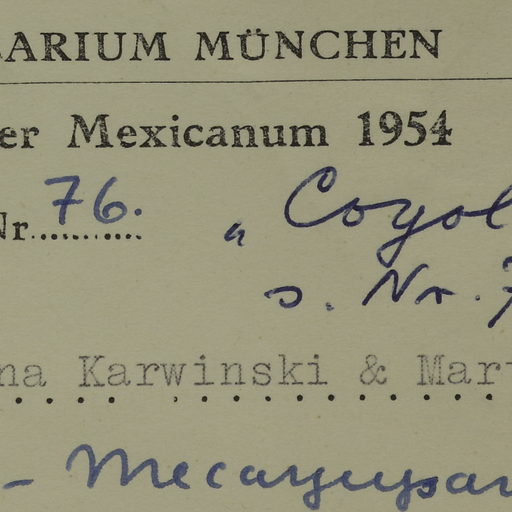 ARIUM MÜNCHEN
er Mexicanum 1954
Nr. 76. „Coyol
s. Nr. 7
na Karwinski & Mar
-